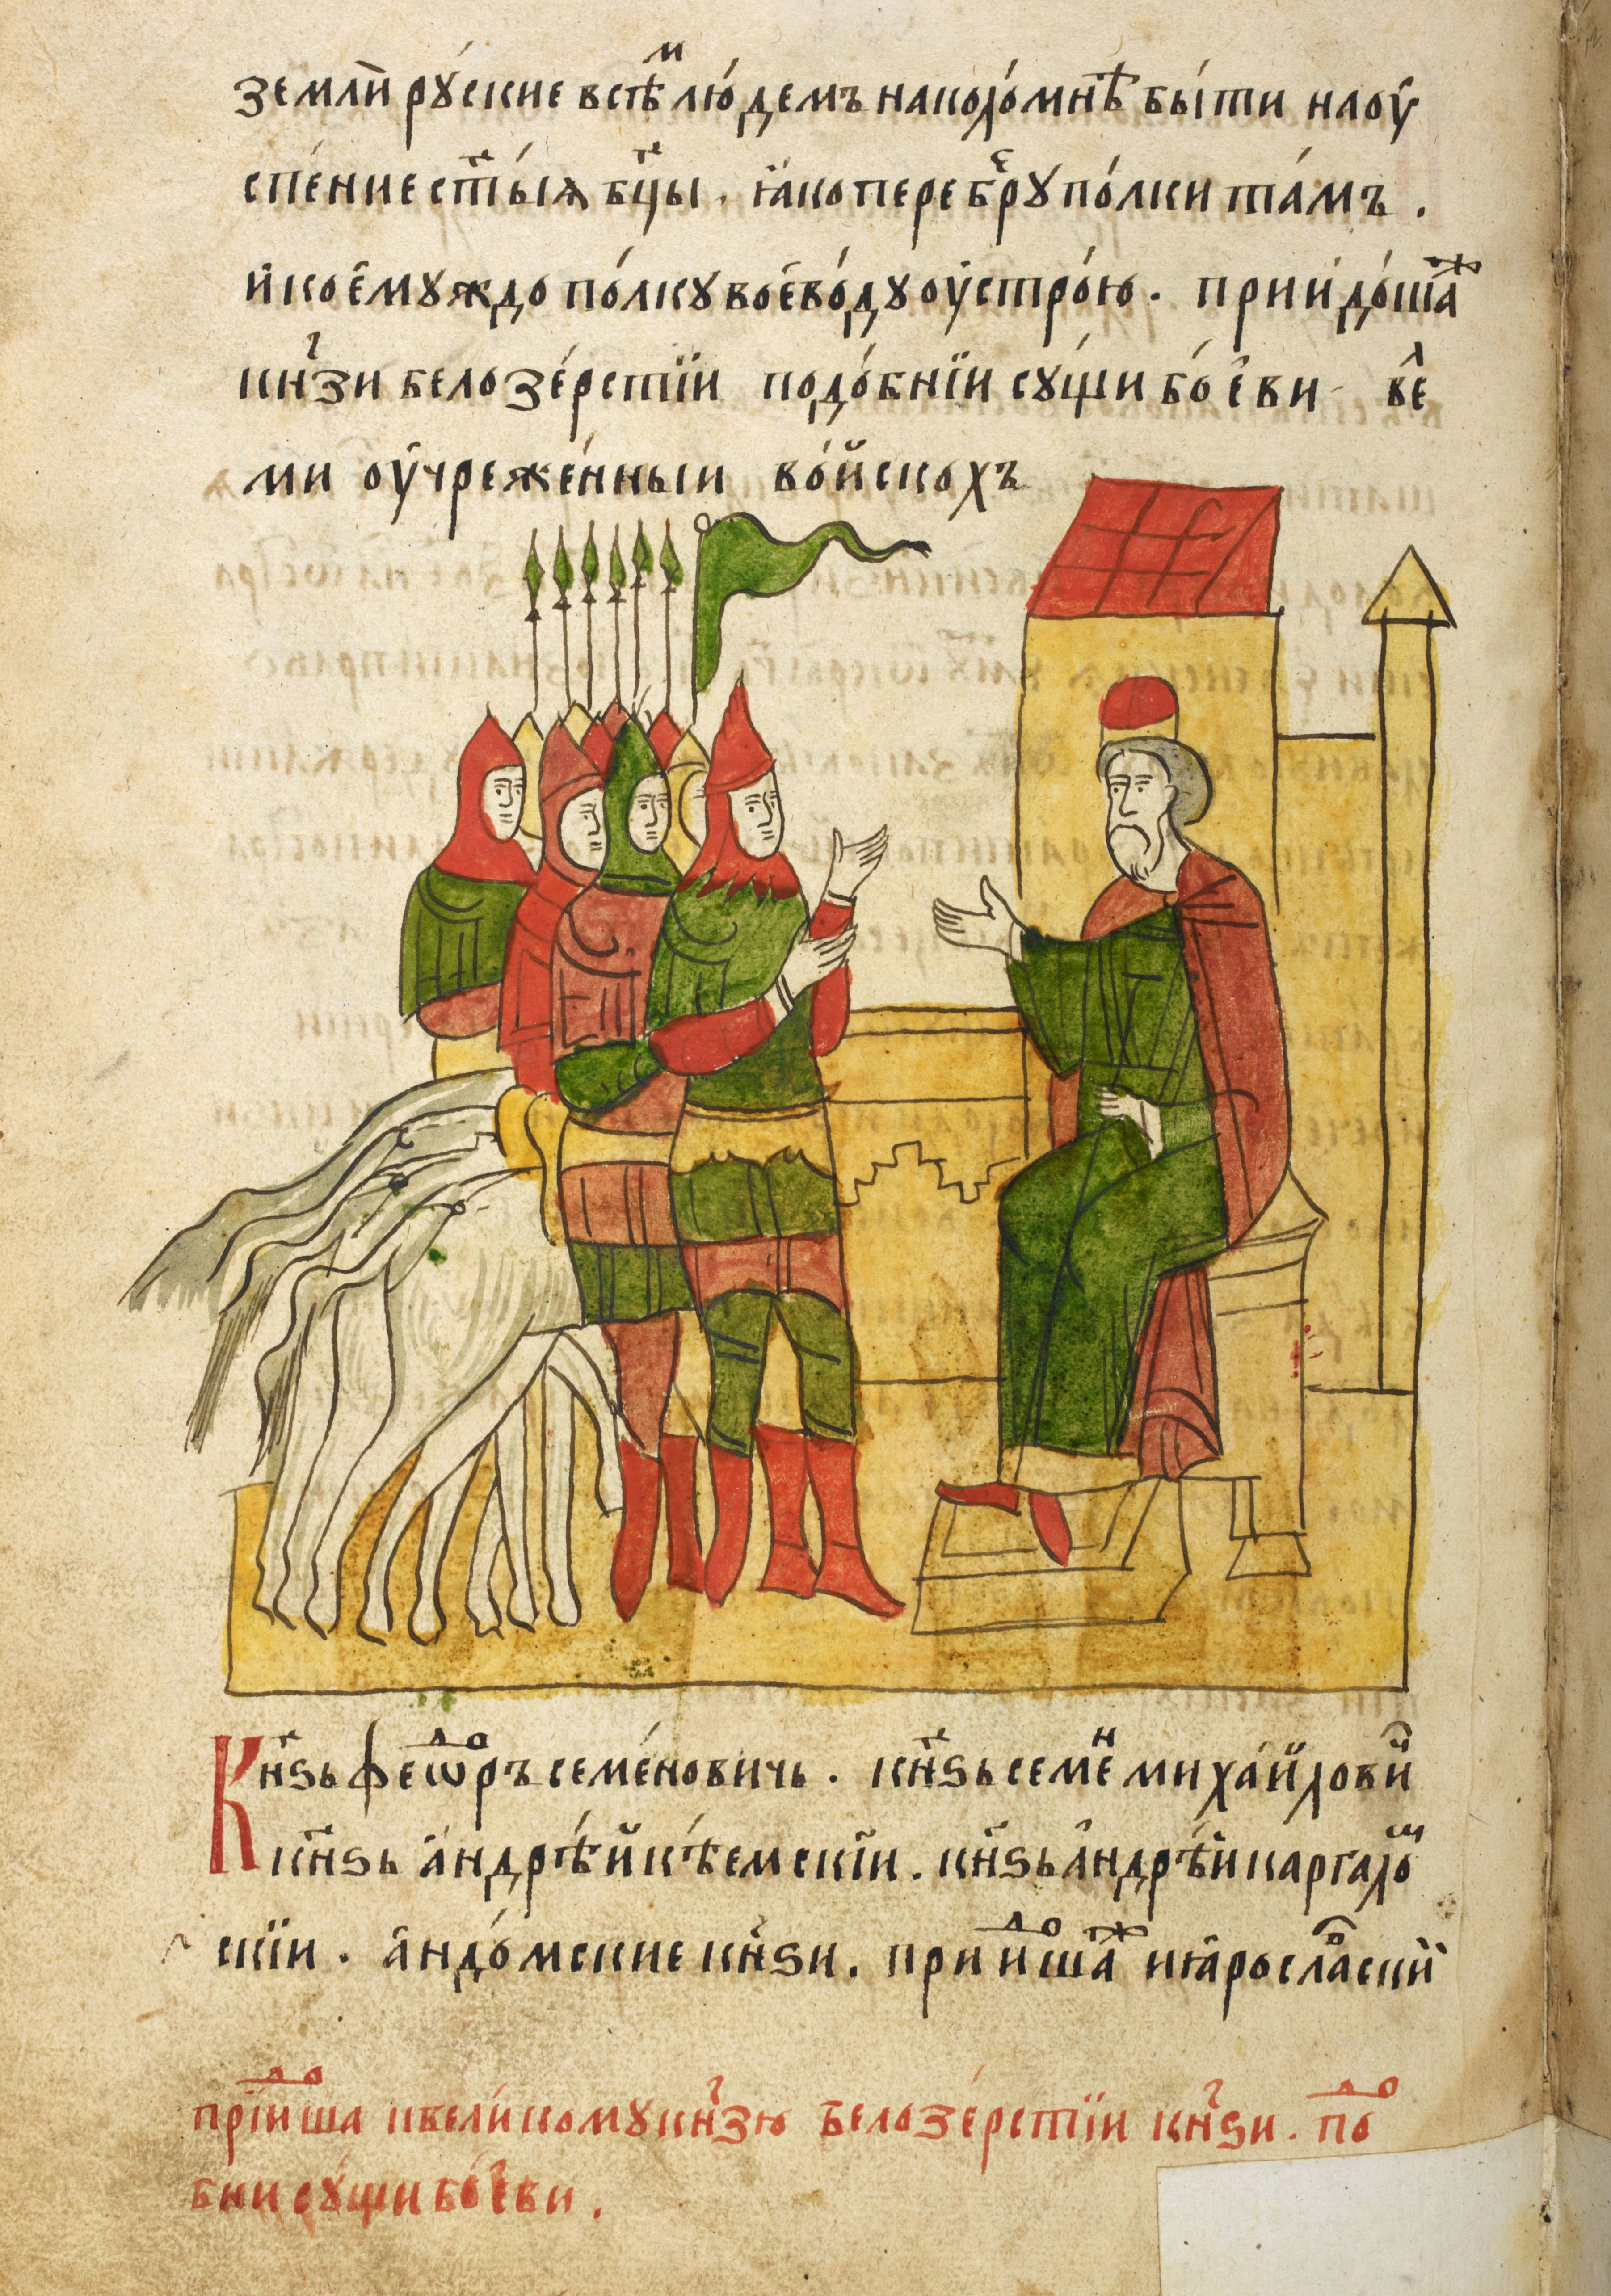 землѝ рꙋ́ские всѣⷨ лю́демъ на коло́мнѣ бы́ти на оу
спе́ние ст҃ы́ѧ бцⷣы. ꙗ́ко переберꙋ̀ по́лки та́мъ.
и҆ коє҆мꙋ́ждо по́лкꙋ воєво́дꙋ оу҆стро́ю. прїидо́шаⷤ
кн҃зи белозе́рстїи подо́бнїи сꙋ́щи бо́єви веⷧ
ми оу҆чреже́нныи во́йскохъ
Кнⷲ҇ѕь феѡⷣръ семе́новичь. кн҃ѕь семеⷩ миха́йлови
кн҃ѕь а҆ндрѣ́й кѣ́емскїи. кн҃ѕь а҆ндрѣ́й каргалоⷨ
скїи. а҆ндо́мские кн҃ѕи. прииⷣоша́ⷤ и ꙗ҆росла́ⷡские
прїиⷣоша к вели́комꙋ кн҃зю белозе́рстїи кн҃ѕи. поⷣо
бнии сꙋ́щи бо́єви.